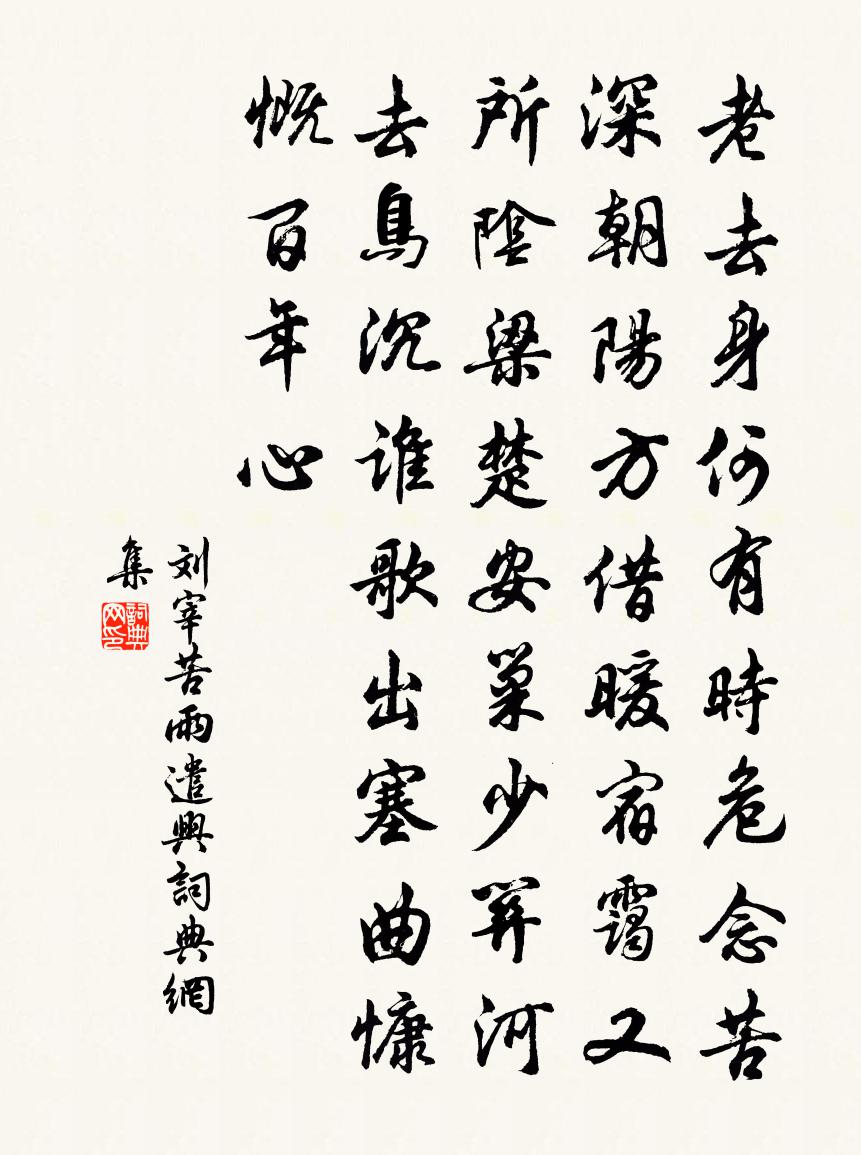 老去身何有時危念苦
深朝陽方借暖宿靄又
所陰梁楚安巢少關河
去鳥沉誰歌出塞曲慷
慨百年心
刘宰苦雨遣興詞典網
集
詞典网印